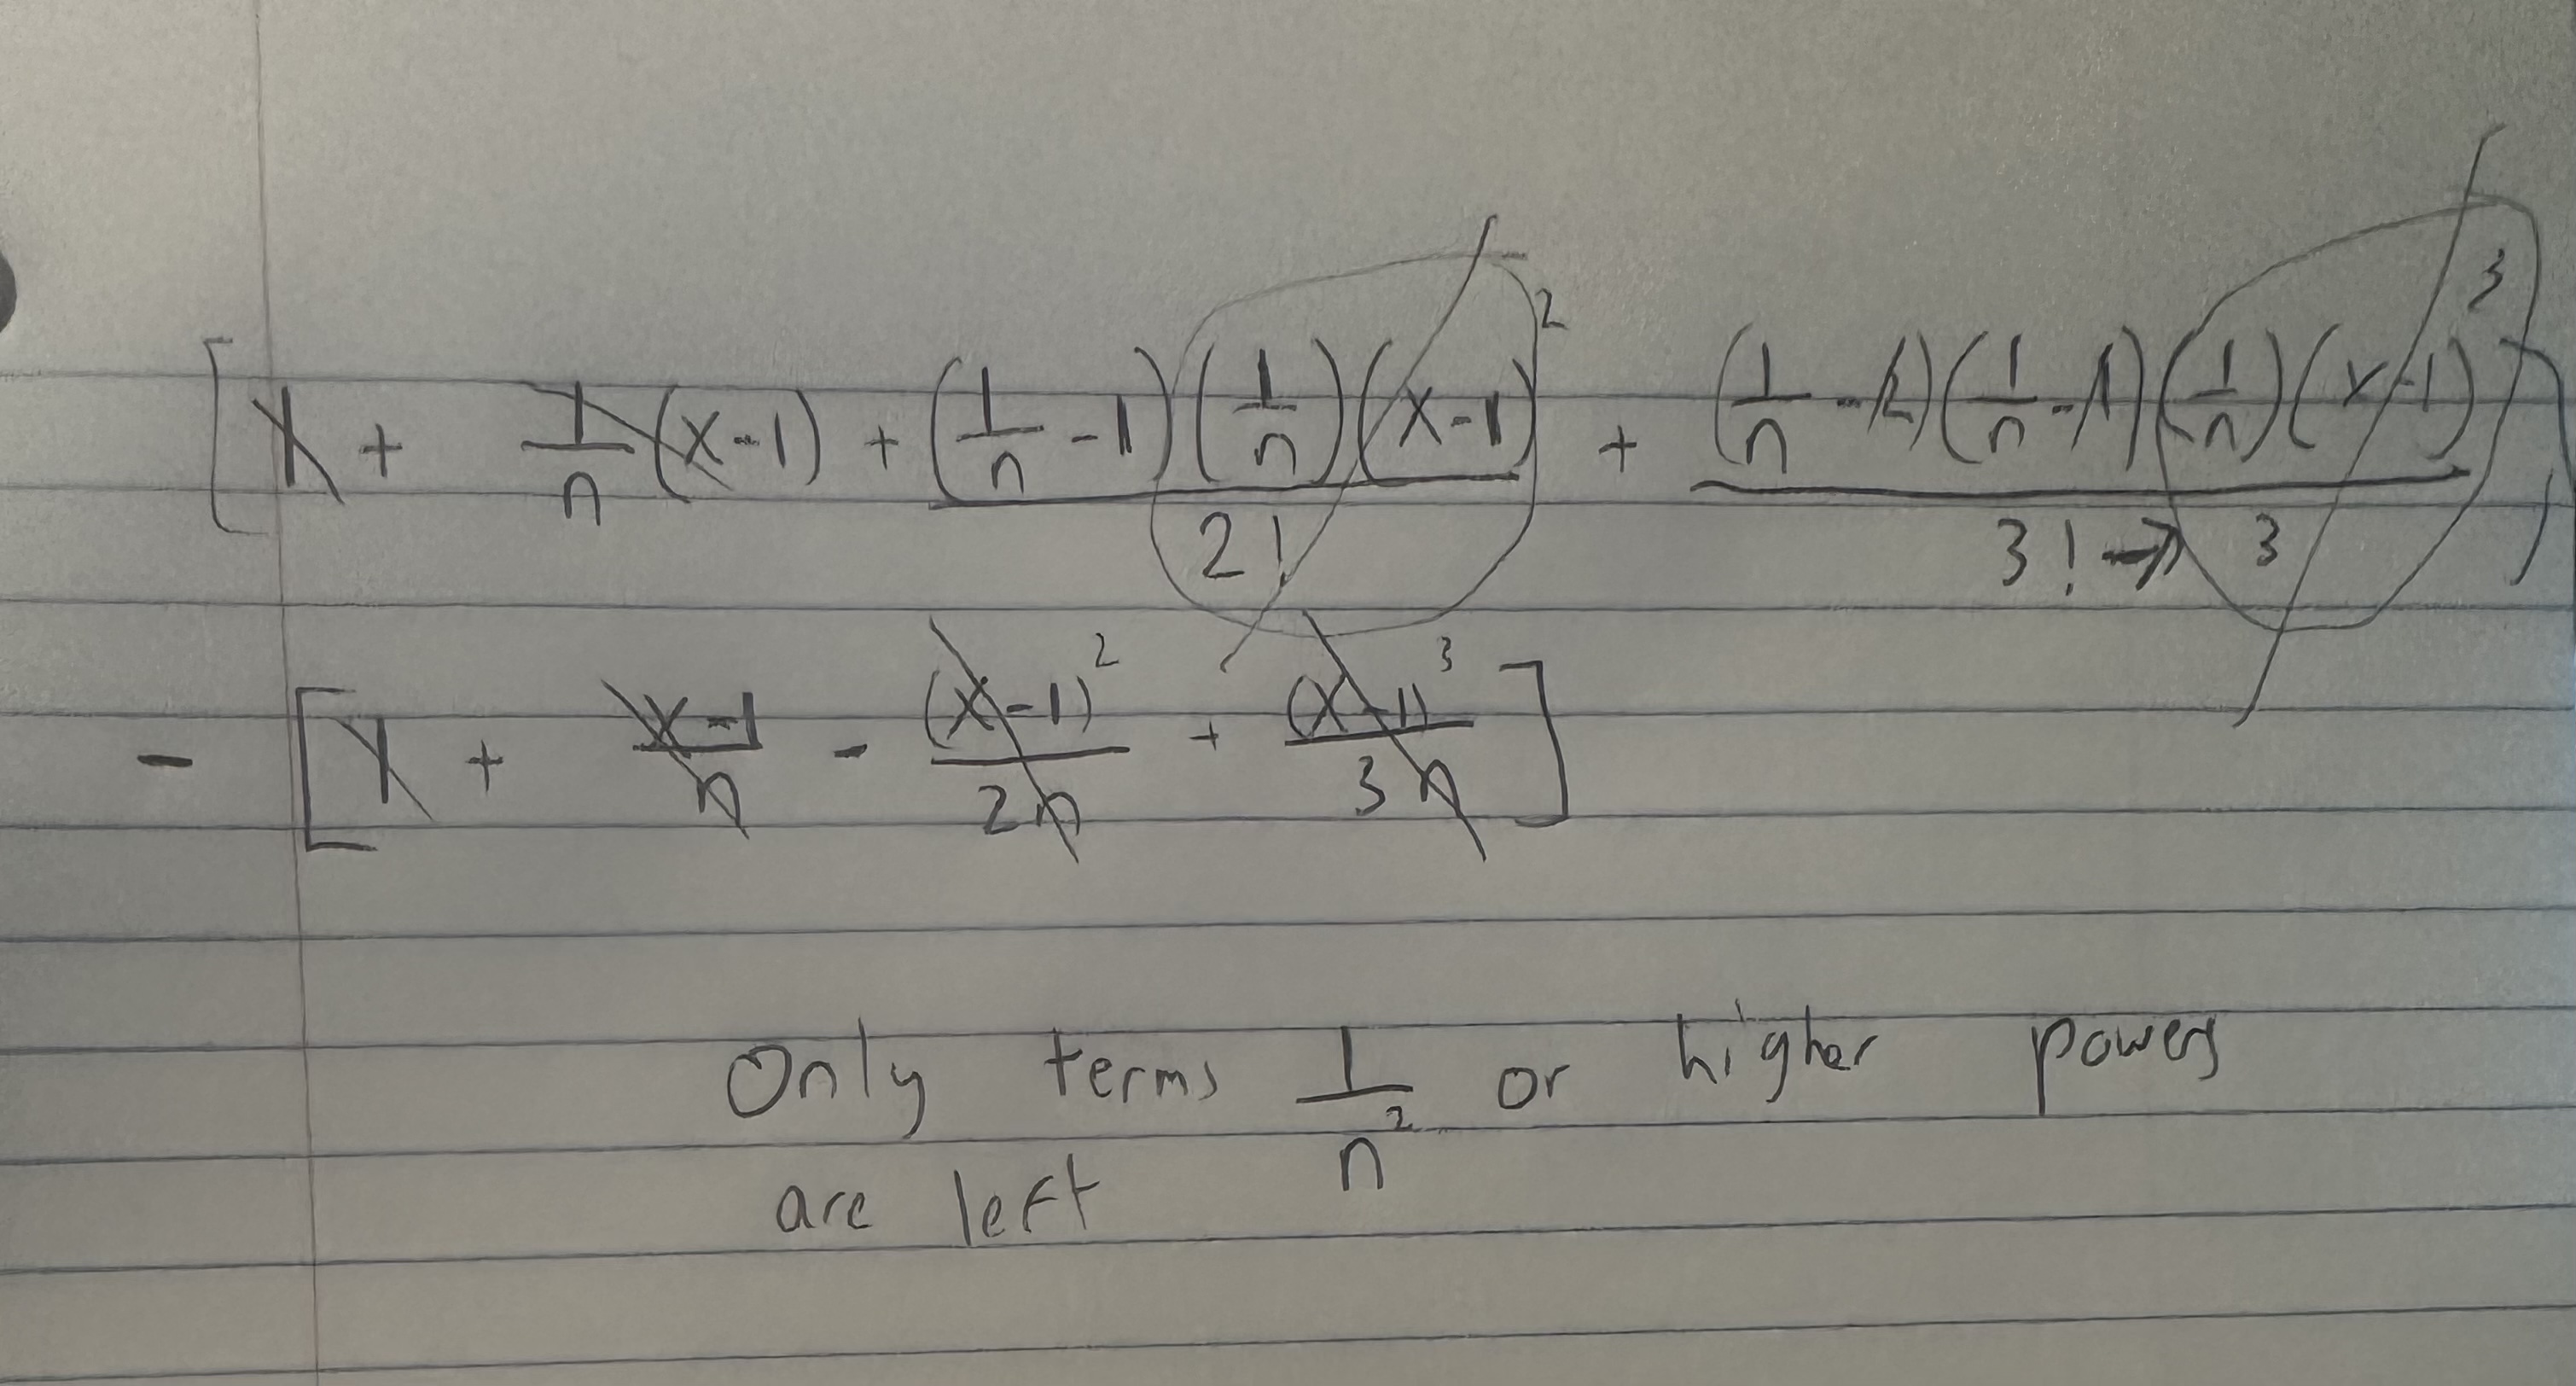 [1 + 1/n (x-1) + (1/n - 1)(1/n)(x-1)^2 / 2! + (1/n - 2)(1/n - 1)(1/n)(x-1)^3 / 3! → 3]
- [1 + x-1/n - (x-1)^2/2n + (x-1)^3/3n]
Only terms 1/n^2 or higher powers
are left